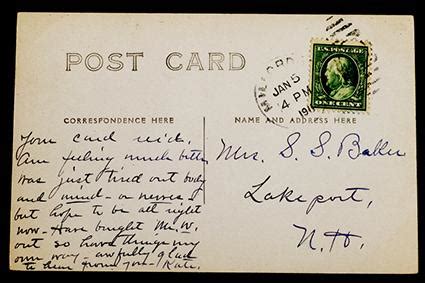 POST CARD
JAN 5
4 PM
191
U.S. POSTAGE
ONE CENT
CORRESPONDENCE HERE
NAME AND ADDRESS HERE
Your card rec'd.
Am feeling much better
was just tired out body
and mind - or nerves -
but hope to be all right
now - Have bought Mr. W.
out so have things my
own way - awfully glad
to hear from you - Kate.
Mrs. S. S. Baker
Lakeport,
N. H.